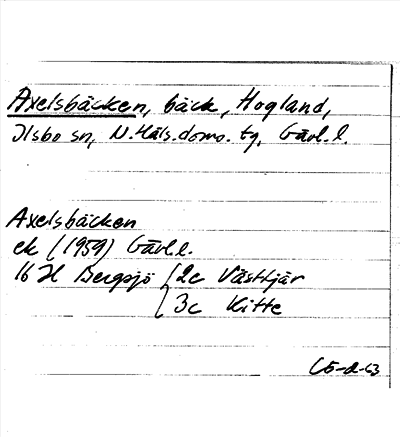 Axelsbäcken, bäck, Hogland,
Ilsbo sn, N.Häls.doms. tg, Gävl.l.
Axelsbäcken
ek (1959) Gävl.l.
16 H Bergsjö 2c Västtjär
3c Kitte